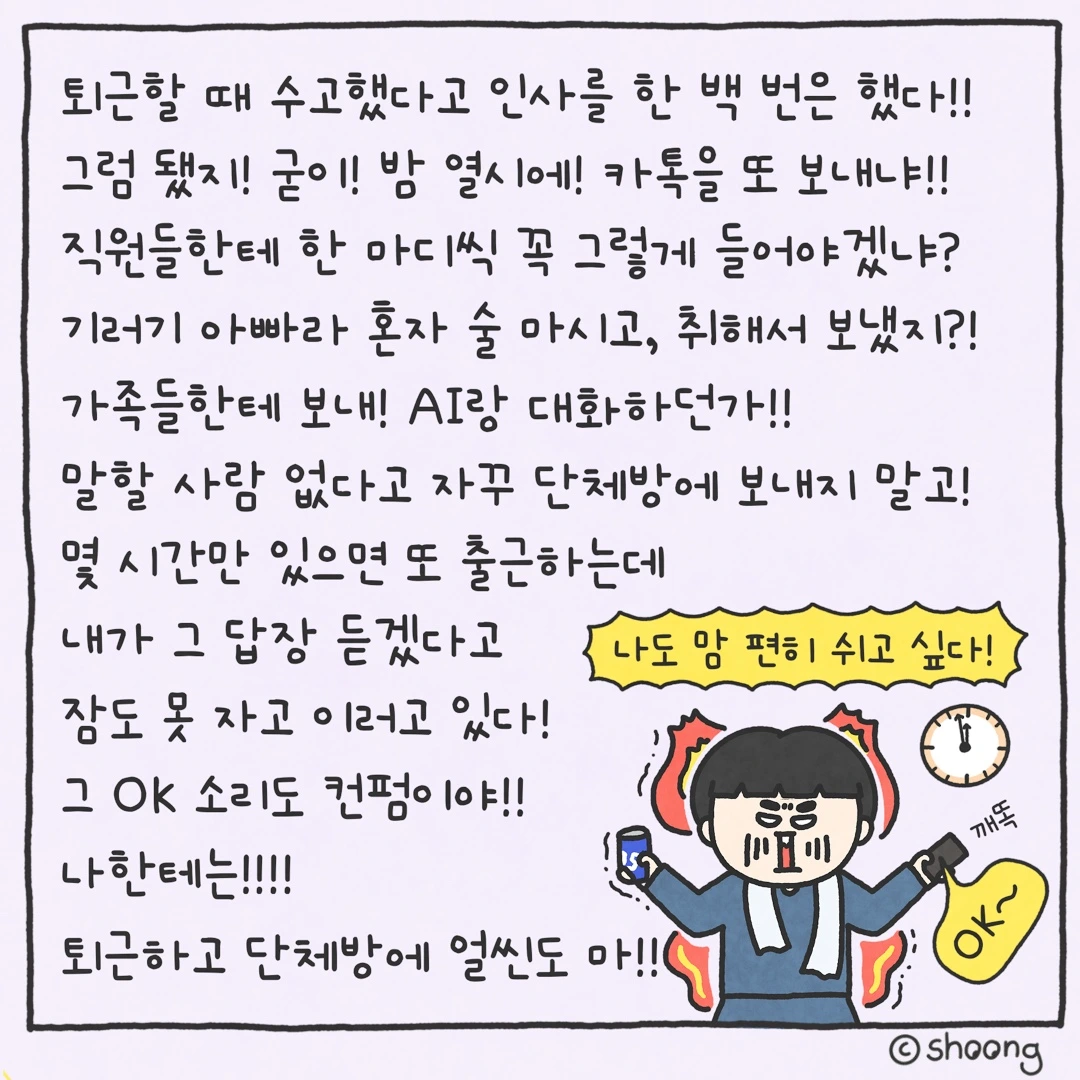 퇴근할 때 수고했다고 인사를 한 백 번은 했다!!
그럼 됐지! 굳이! 밤 열시에! 카톡을 또 보내냐!!
직원들한테 한 마디씩 꼭 그렇게 들어야겠냐?
기러기 아빠라 혼자 술 마시고, 취해서 보냈지?!
가족들한테 보내! AI랑 대화하던가!!
말할 사람 없다고 자꾸 단체방에 보내지 말고!
몇 시간만 있으면 또 출근하는데
내가 그 답장 듣겠다고
잠도 못 자고 이러고 있다!
그 OK 소리도 컨펌이야!!
나한테는!!!!
퇴근하고 단체방에 얼씬도 마!!
나도 맘 편히 쉬고 싶다!
깨똑
OK~
©shoong